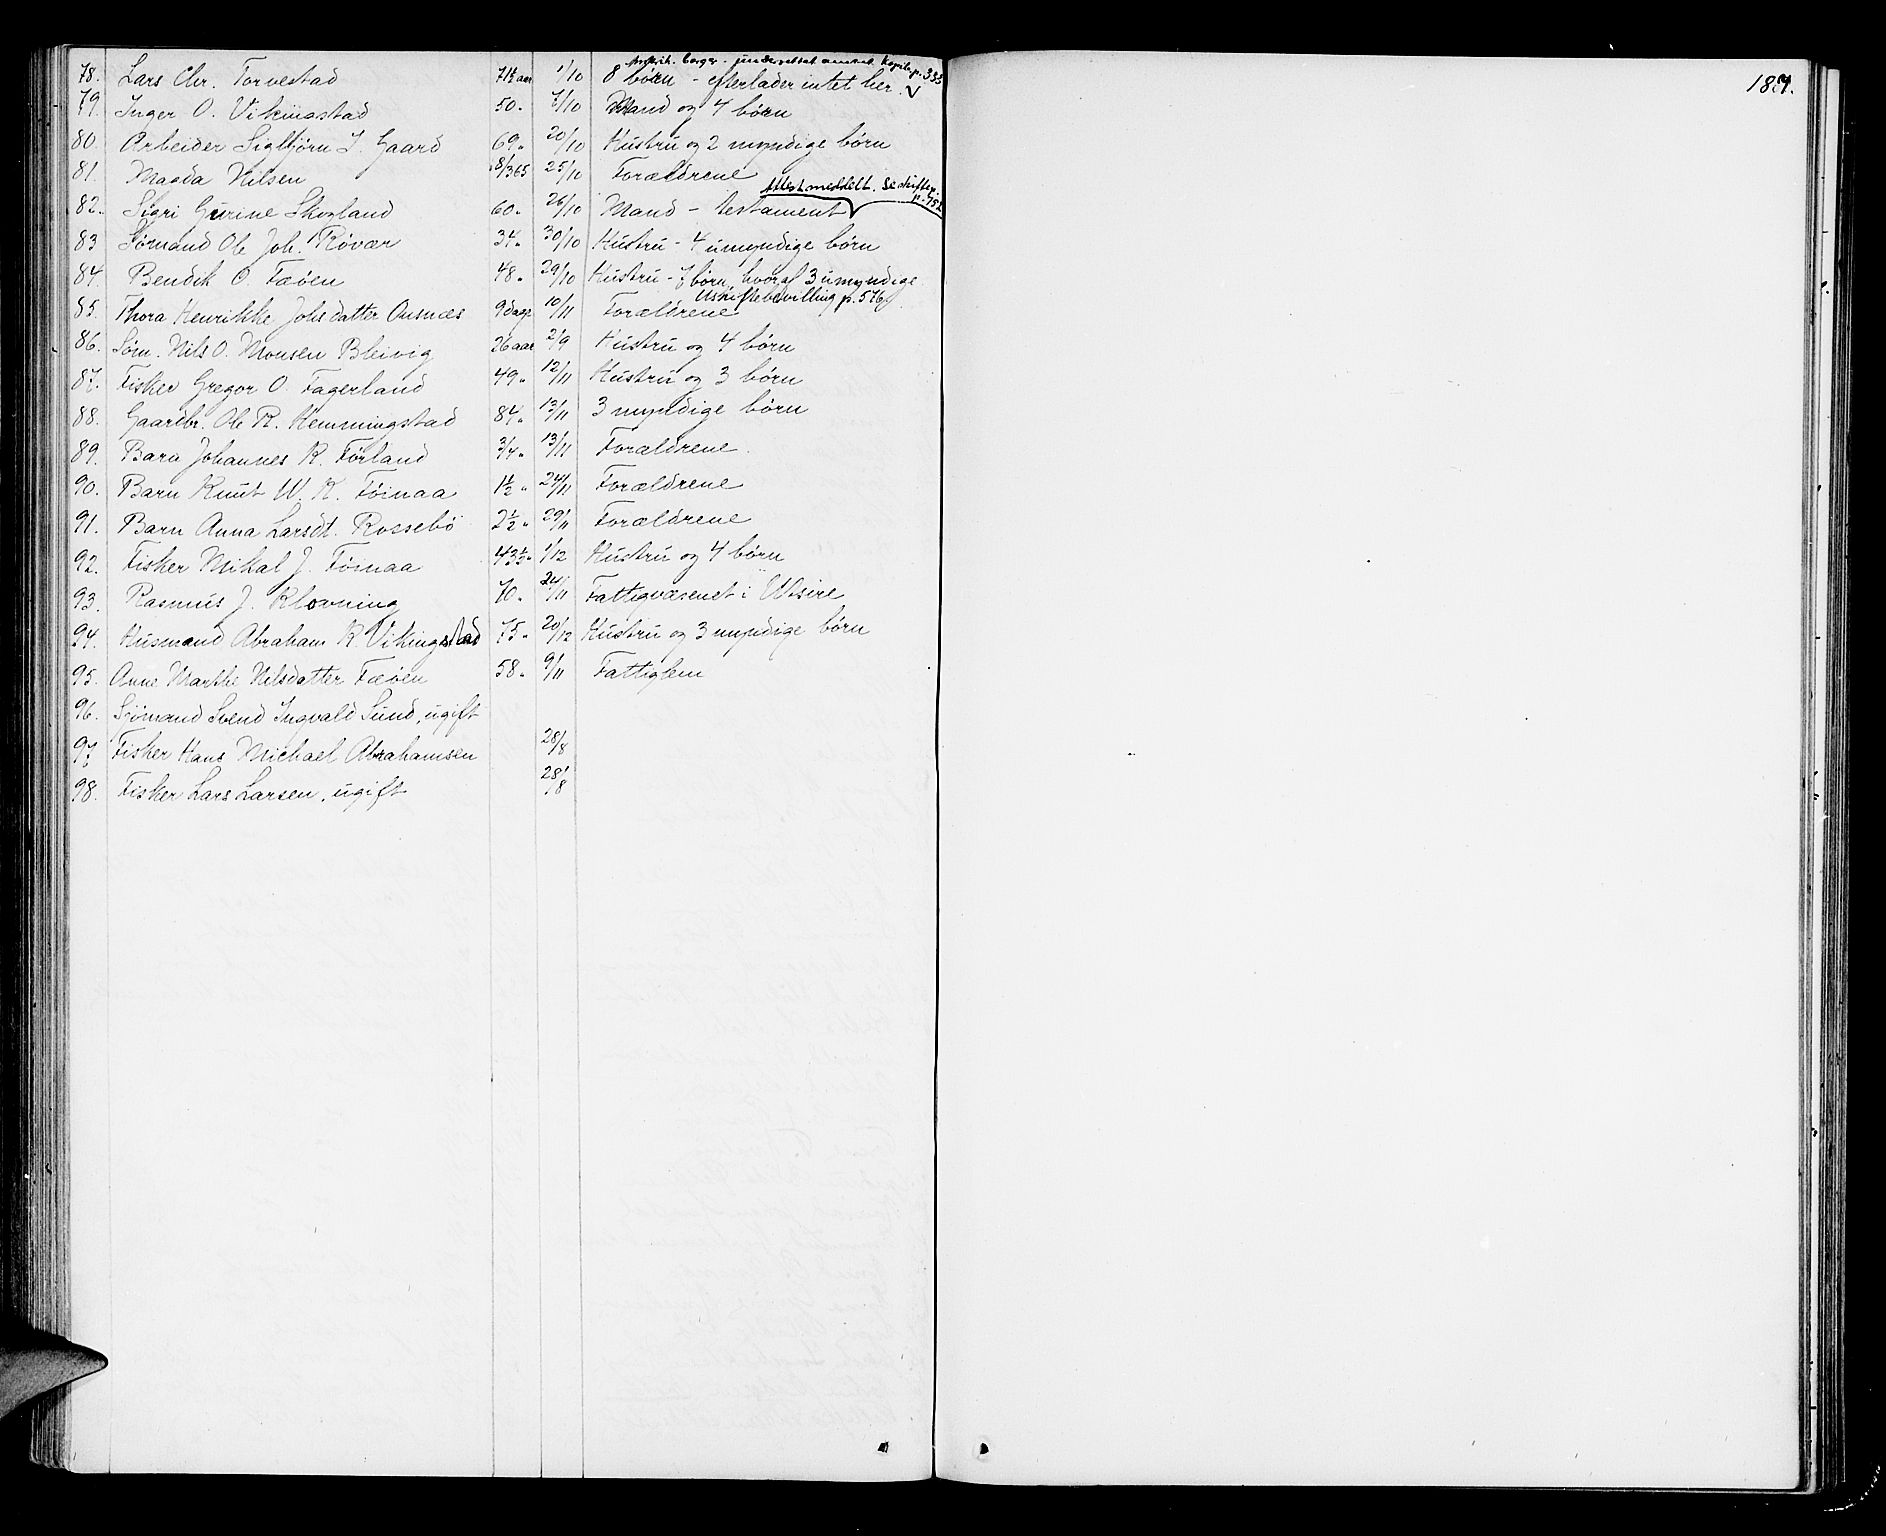 78. Lars Chr. Torvestad 71½ aar 1/10 8 børn - efterlader intet her.
79. Inger O. Vikingstad 50. 7/10 Mand og 4 børn
80. Arbeider Sigbjørn I. Gaard 69. 20/10 Hustru og 2 myndige børn
81. Magda Nilsen 8/365 25/10 Forældrene
Attest meddelt. Se skiftep. p. 752
82. Sigri Gurine Skogland 60. 26/10 Mand - testament
83 Sømand Ole Joh. Røvær 34. 30/10 Hustru - 4 umyndige børn
84. Bendik O. Fæøen 48. 29/10 Hustru - 7 børn, hvoraf 3 umyndige
Uskiftebevilling p. 576
85. Thora Henrikke Johsdatter Ousnæs 9 dage 10/11 Forældrene
86. Søm. Nils O. Monsen Bleivig 26 aar 2/9 Hustru og 4 børn
87. Fisker Gregor O. Fagerland 49. 12/11 Hustru og 3 børn
88. Gaardbr. Ole R. Hemmingstad 84. 13/11 3 myndige børn
89. Barn Johannes K. Førland 3/4. 13/11 Forældrene.
90. Barn Knut W. K. Føinaa 1½ " 24/11 Forældrene
91. Barn Anna Larsdt. Rossebö 2½. 29/11 Forældrene
92. Fisker Mikal J. Føinaa 43½. 1/12 Hustru og 4 børn
93. Rasmus J. Klovning 70. 24/11 Fattigvæsenet i Utsire
94. Husmand Abraham K. Vikingstad 75. 20/12 Hustru og 3 myndige børn
95. Anne Marthe Nilsdatter Fæøen 58. 9/11 Fattiglem
96. Sjömand Svend Ingvald Sund, ugift
97. Fisker Hans Michael Abrahamsen 28/8
98. Fisker Lars Larsen, ugift 28/8
187.